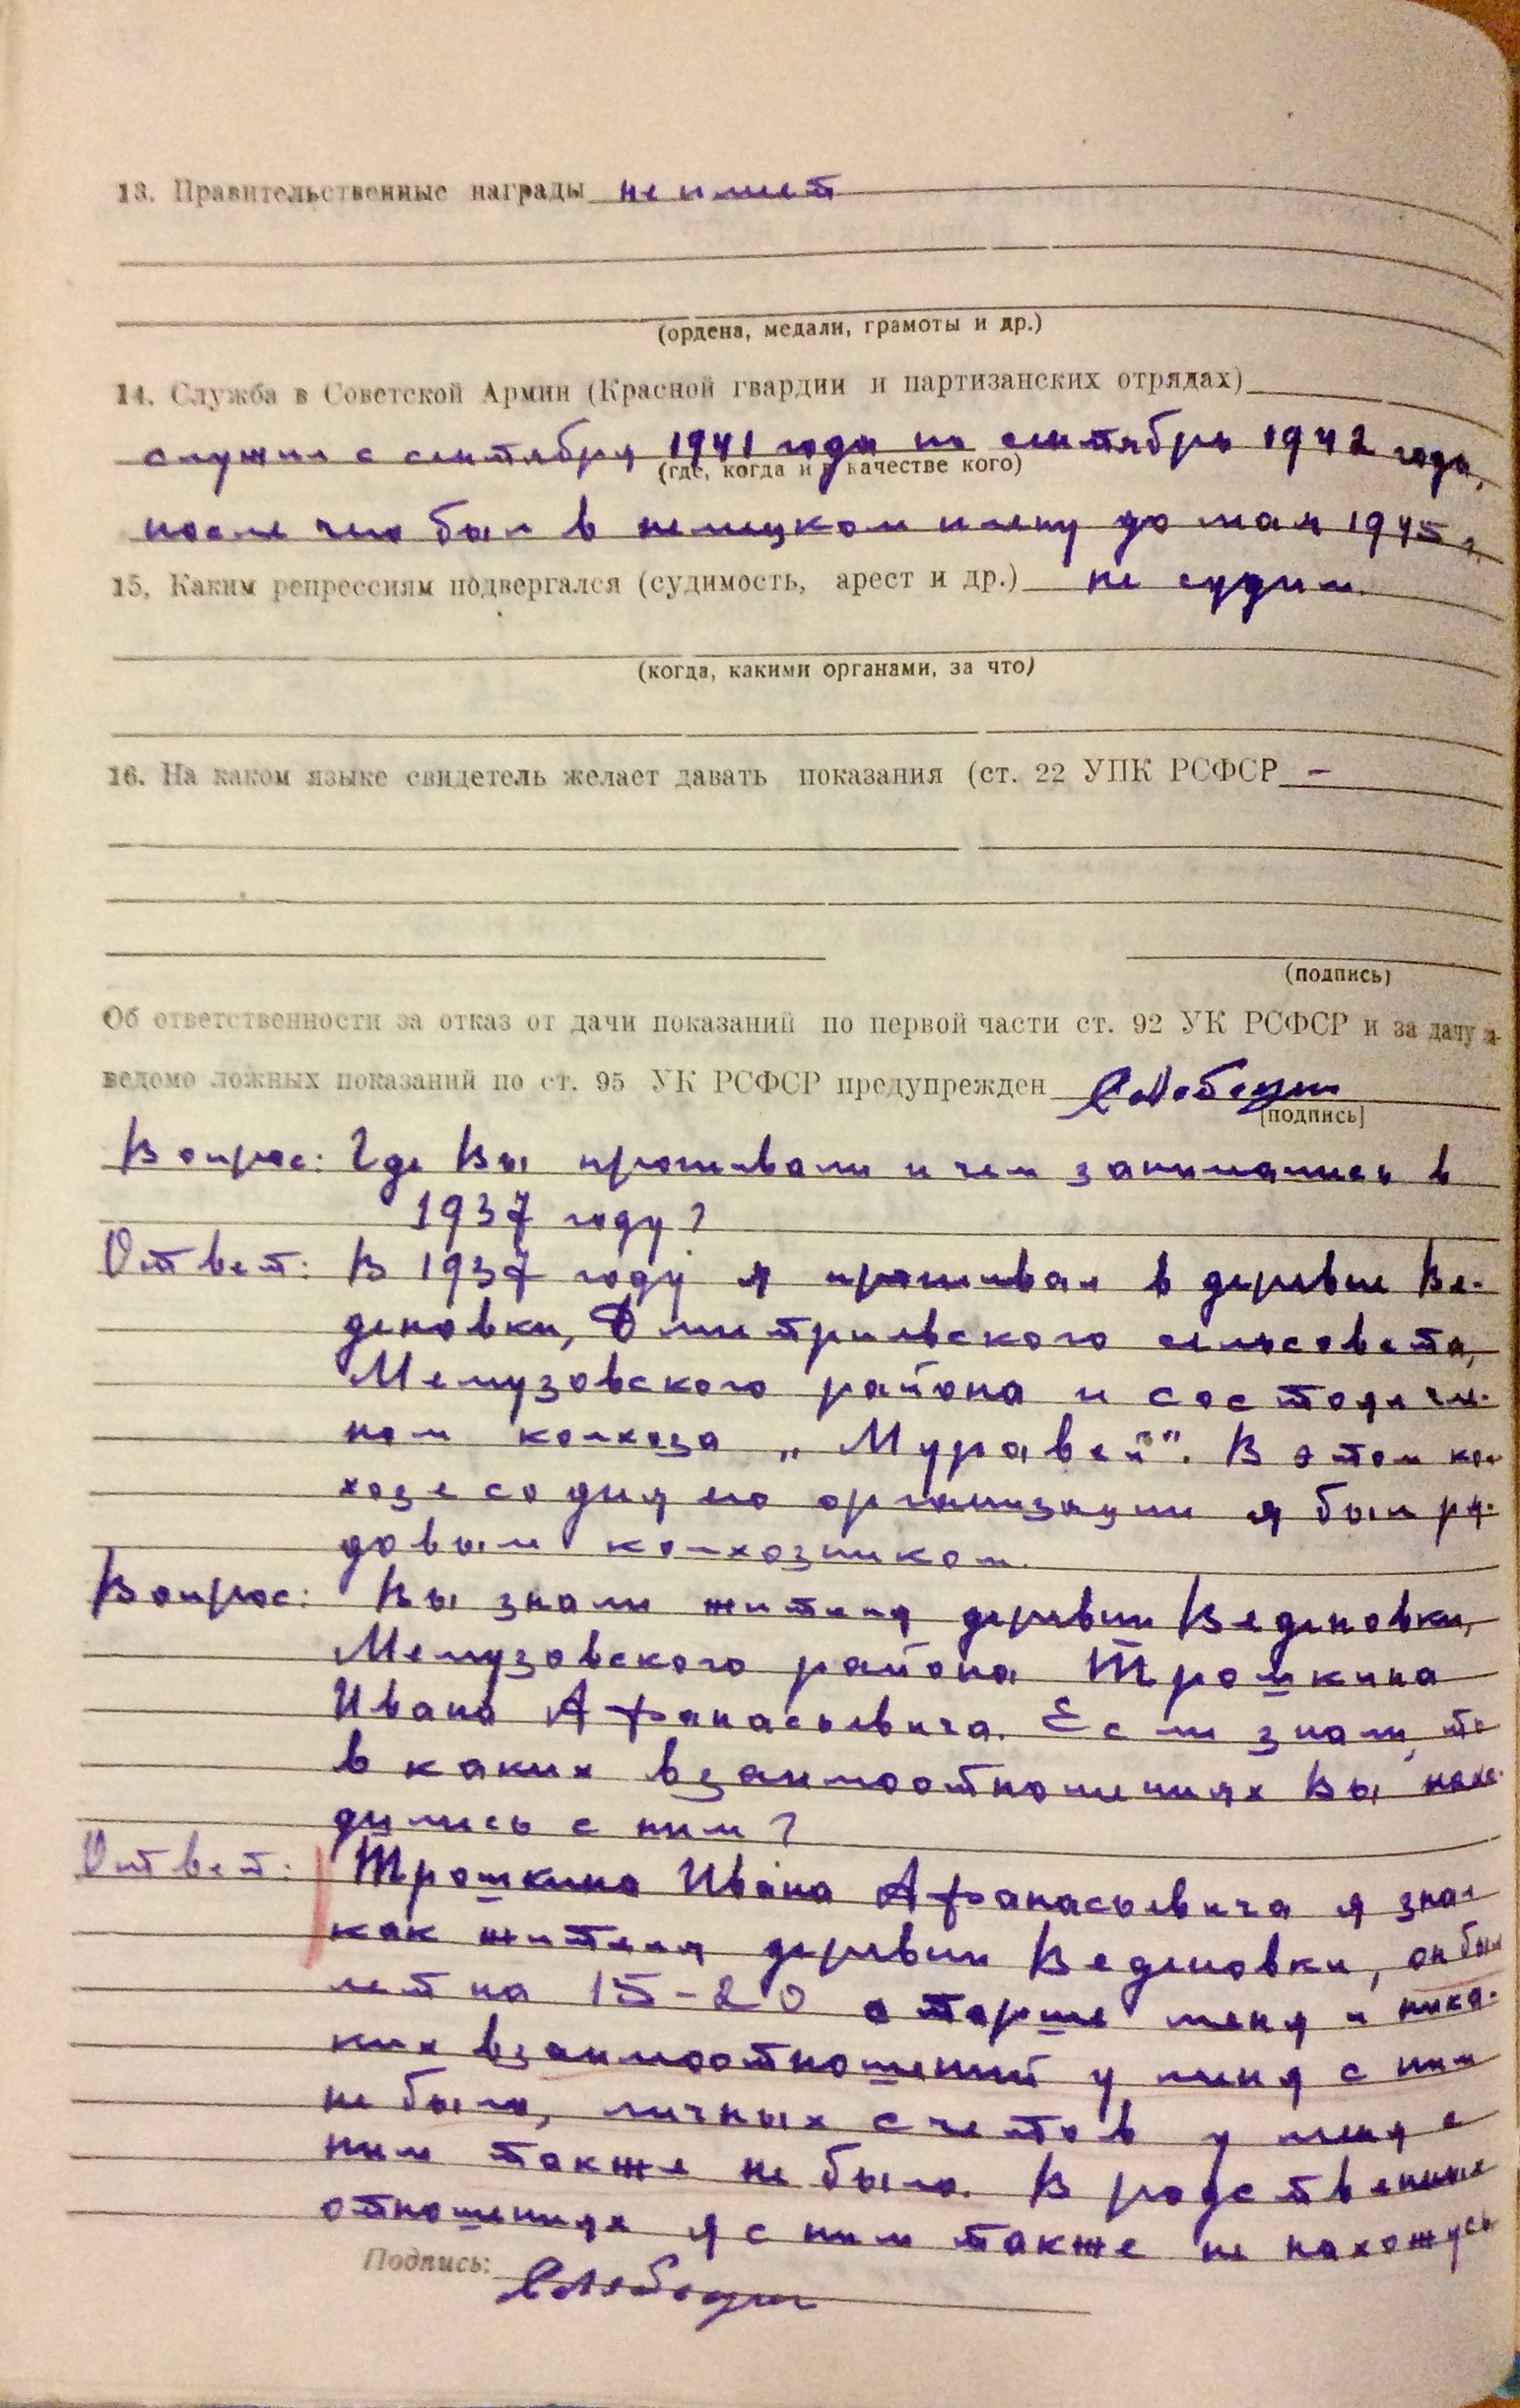 13. Правительственные награды не имеет
(ордена, медали, грамоты и др.)
14. Служба в Советской Армии (Красной гвардии и партизанских отрядах)
служил с сентября 1941 года по сентябрь 1942 года,
(где, когда и в качестве кого)
после чего был в немецком плену до мая 1945 г.
15. Каким репрессиям подвергался (судимость, арест и др.) не судим.
(когда, какими органами, за что)
16. На каком языке свидетель желает давать показания (ст. 22 УПК РСФСР –
(подпись)
Об ответственности за отказ от дачи показаний по первой части ст. 92 УК РСФСР и за дачу за-
ведомо ложных показаний по ст. 95 УК РСФСР предупрежден
[подпись]
Вопрос: Где Вы проживали и чем занимались в
1937 году?
Ответ: В 1937 году я проживал в деревне Ве-
деновки, Дмитриевского сельсовета,
Мелузовского района и состоял чле-
ном колхоза „Муравей". В этом кол-
хозе со дня его организации я был ря-
довым колхозником.
Вопрос: Вы знали жителя деревни Веденовки,
Мелузовского района Трошкина
Ивана Афанасьевича. Если знали, то
в каких взаимоотношениях Вы нахо-
дились с ним?
Ответ: Трошкина Ивана Афанасьевича я знал
как жителя деревни Веденовки, он был
лет на 15-20 старше меня и ника-
ких взаимоотношений у меня с ним
не было, личных счетов у меня с
ним также не было. В родственных
отношениях я с ним также не нахожусь
Подпись: